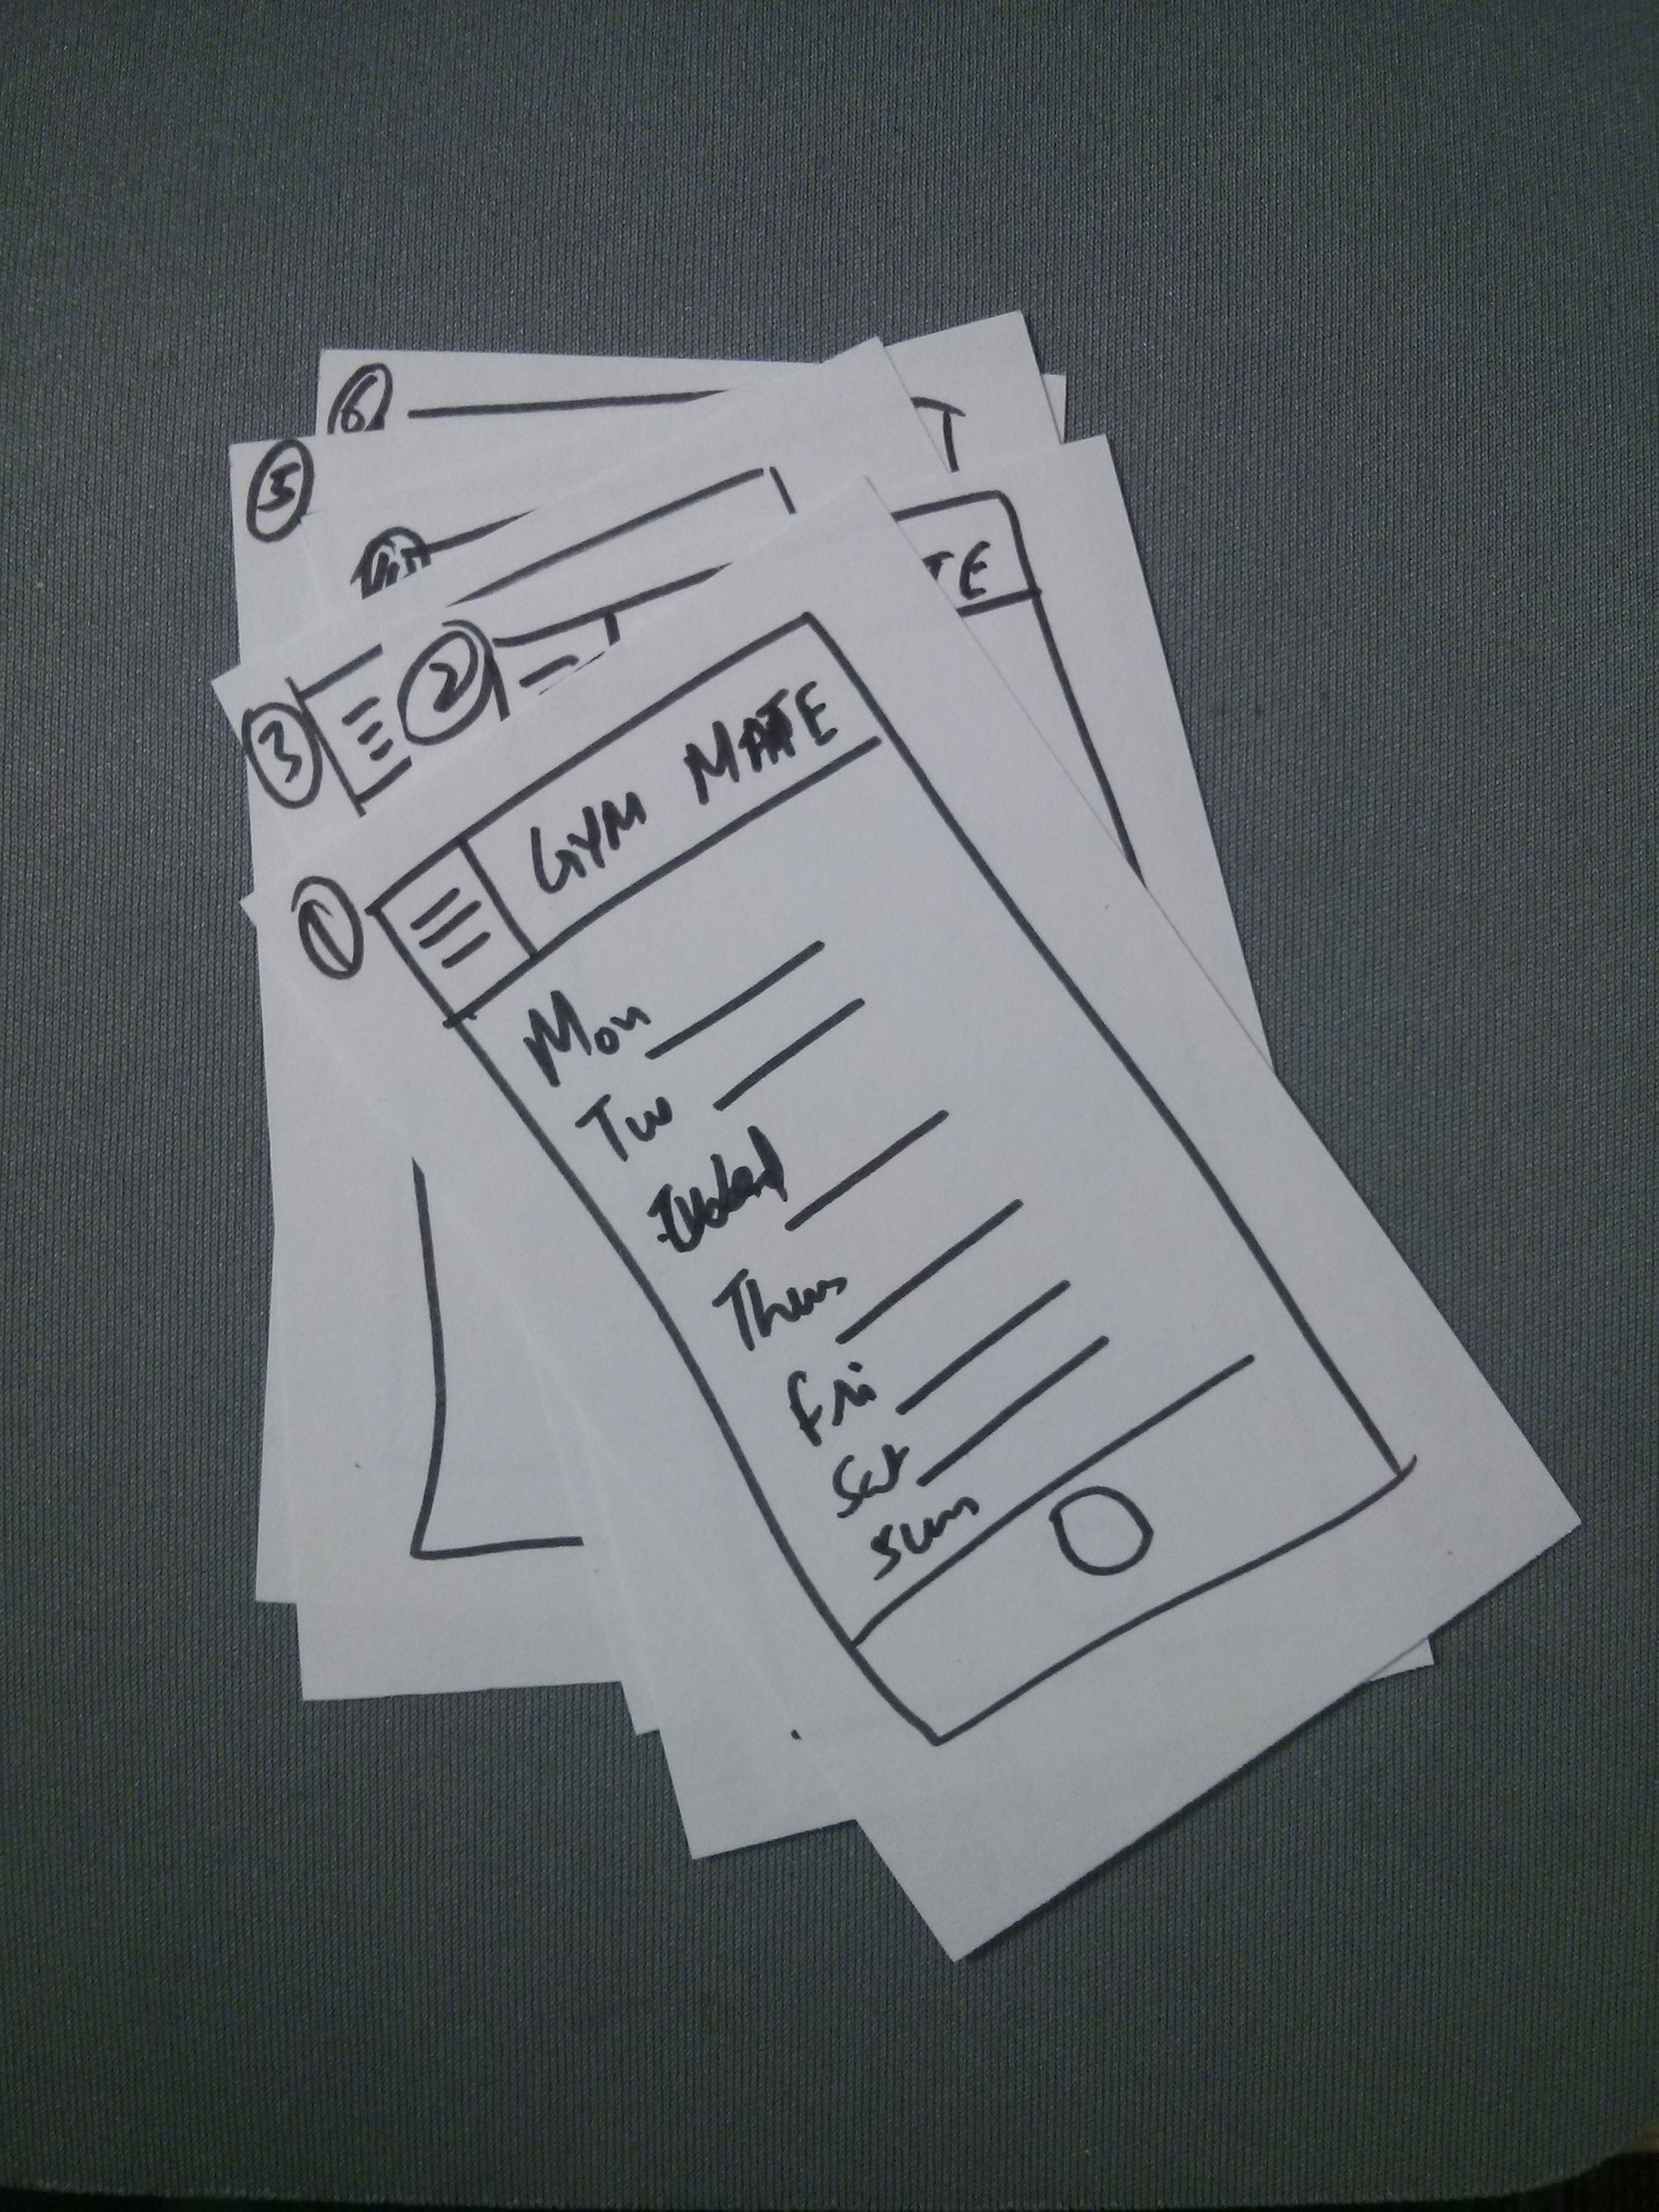 6
5
TE
2
3
GYM MATE
1
Mon
Tue
Wed
Thurs
Fri
Sat
Sun